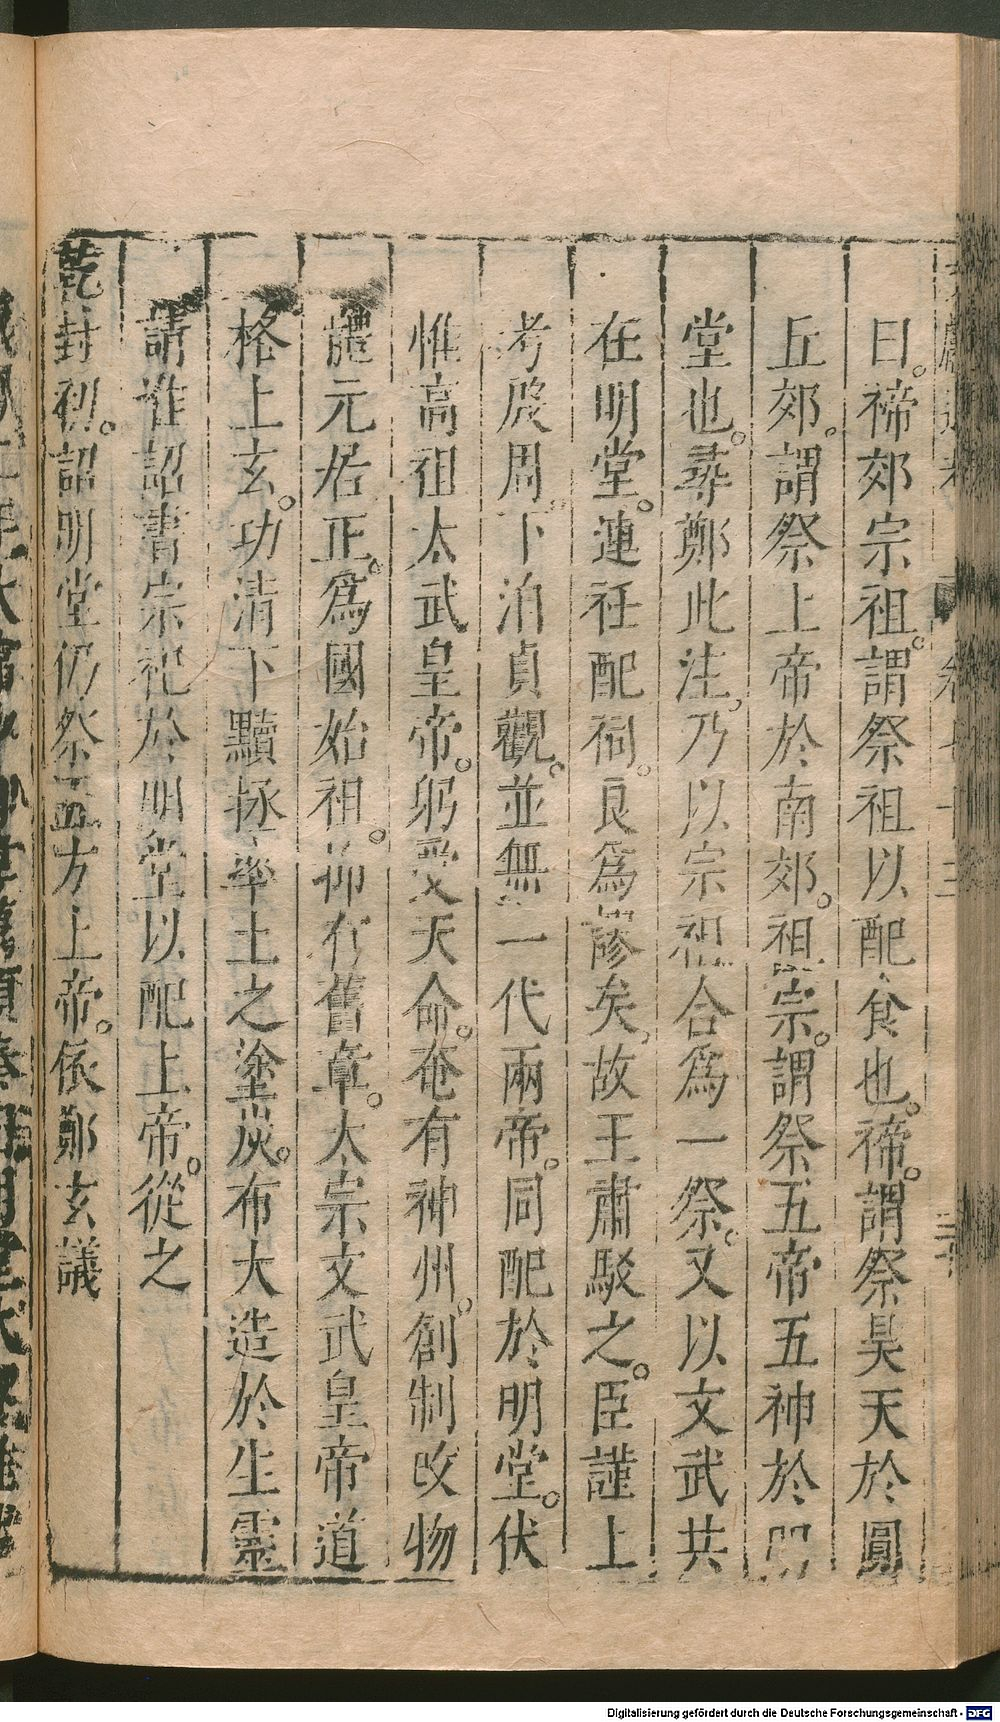 曰。禘郊宗祖。謂祭祖以配食也。禘。謂祭昊天於圓
丘郊。謂祭上帝於南郊。祖宗。謂祭五帝五神於明
堂也。尋鄭此注。乃以宗祖合爲一祭。又以文武共
在明堂。連衽配祠。良爲謬矣。故王肅駁之。臣謹上
考殷周。下洎貞觀。並無一代兩帝。同配於明堂。伏
惟高祖太武皇帝。躬受天命。奄有神州。創制改物
體元居正。爲國始祖。抑有舊章。太宗文武皇帝道
格上玄。功清下黷拯率土之塗炭。布大造於生靈
請准詔書宗祀於明堂以配上帝。從之
乾封初。詔明堂仍祭五方上帝。依鄭玄議
Digitalisierung gefördert durch die Deutsche Forschungsgemeinschaft - DFG